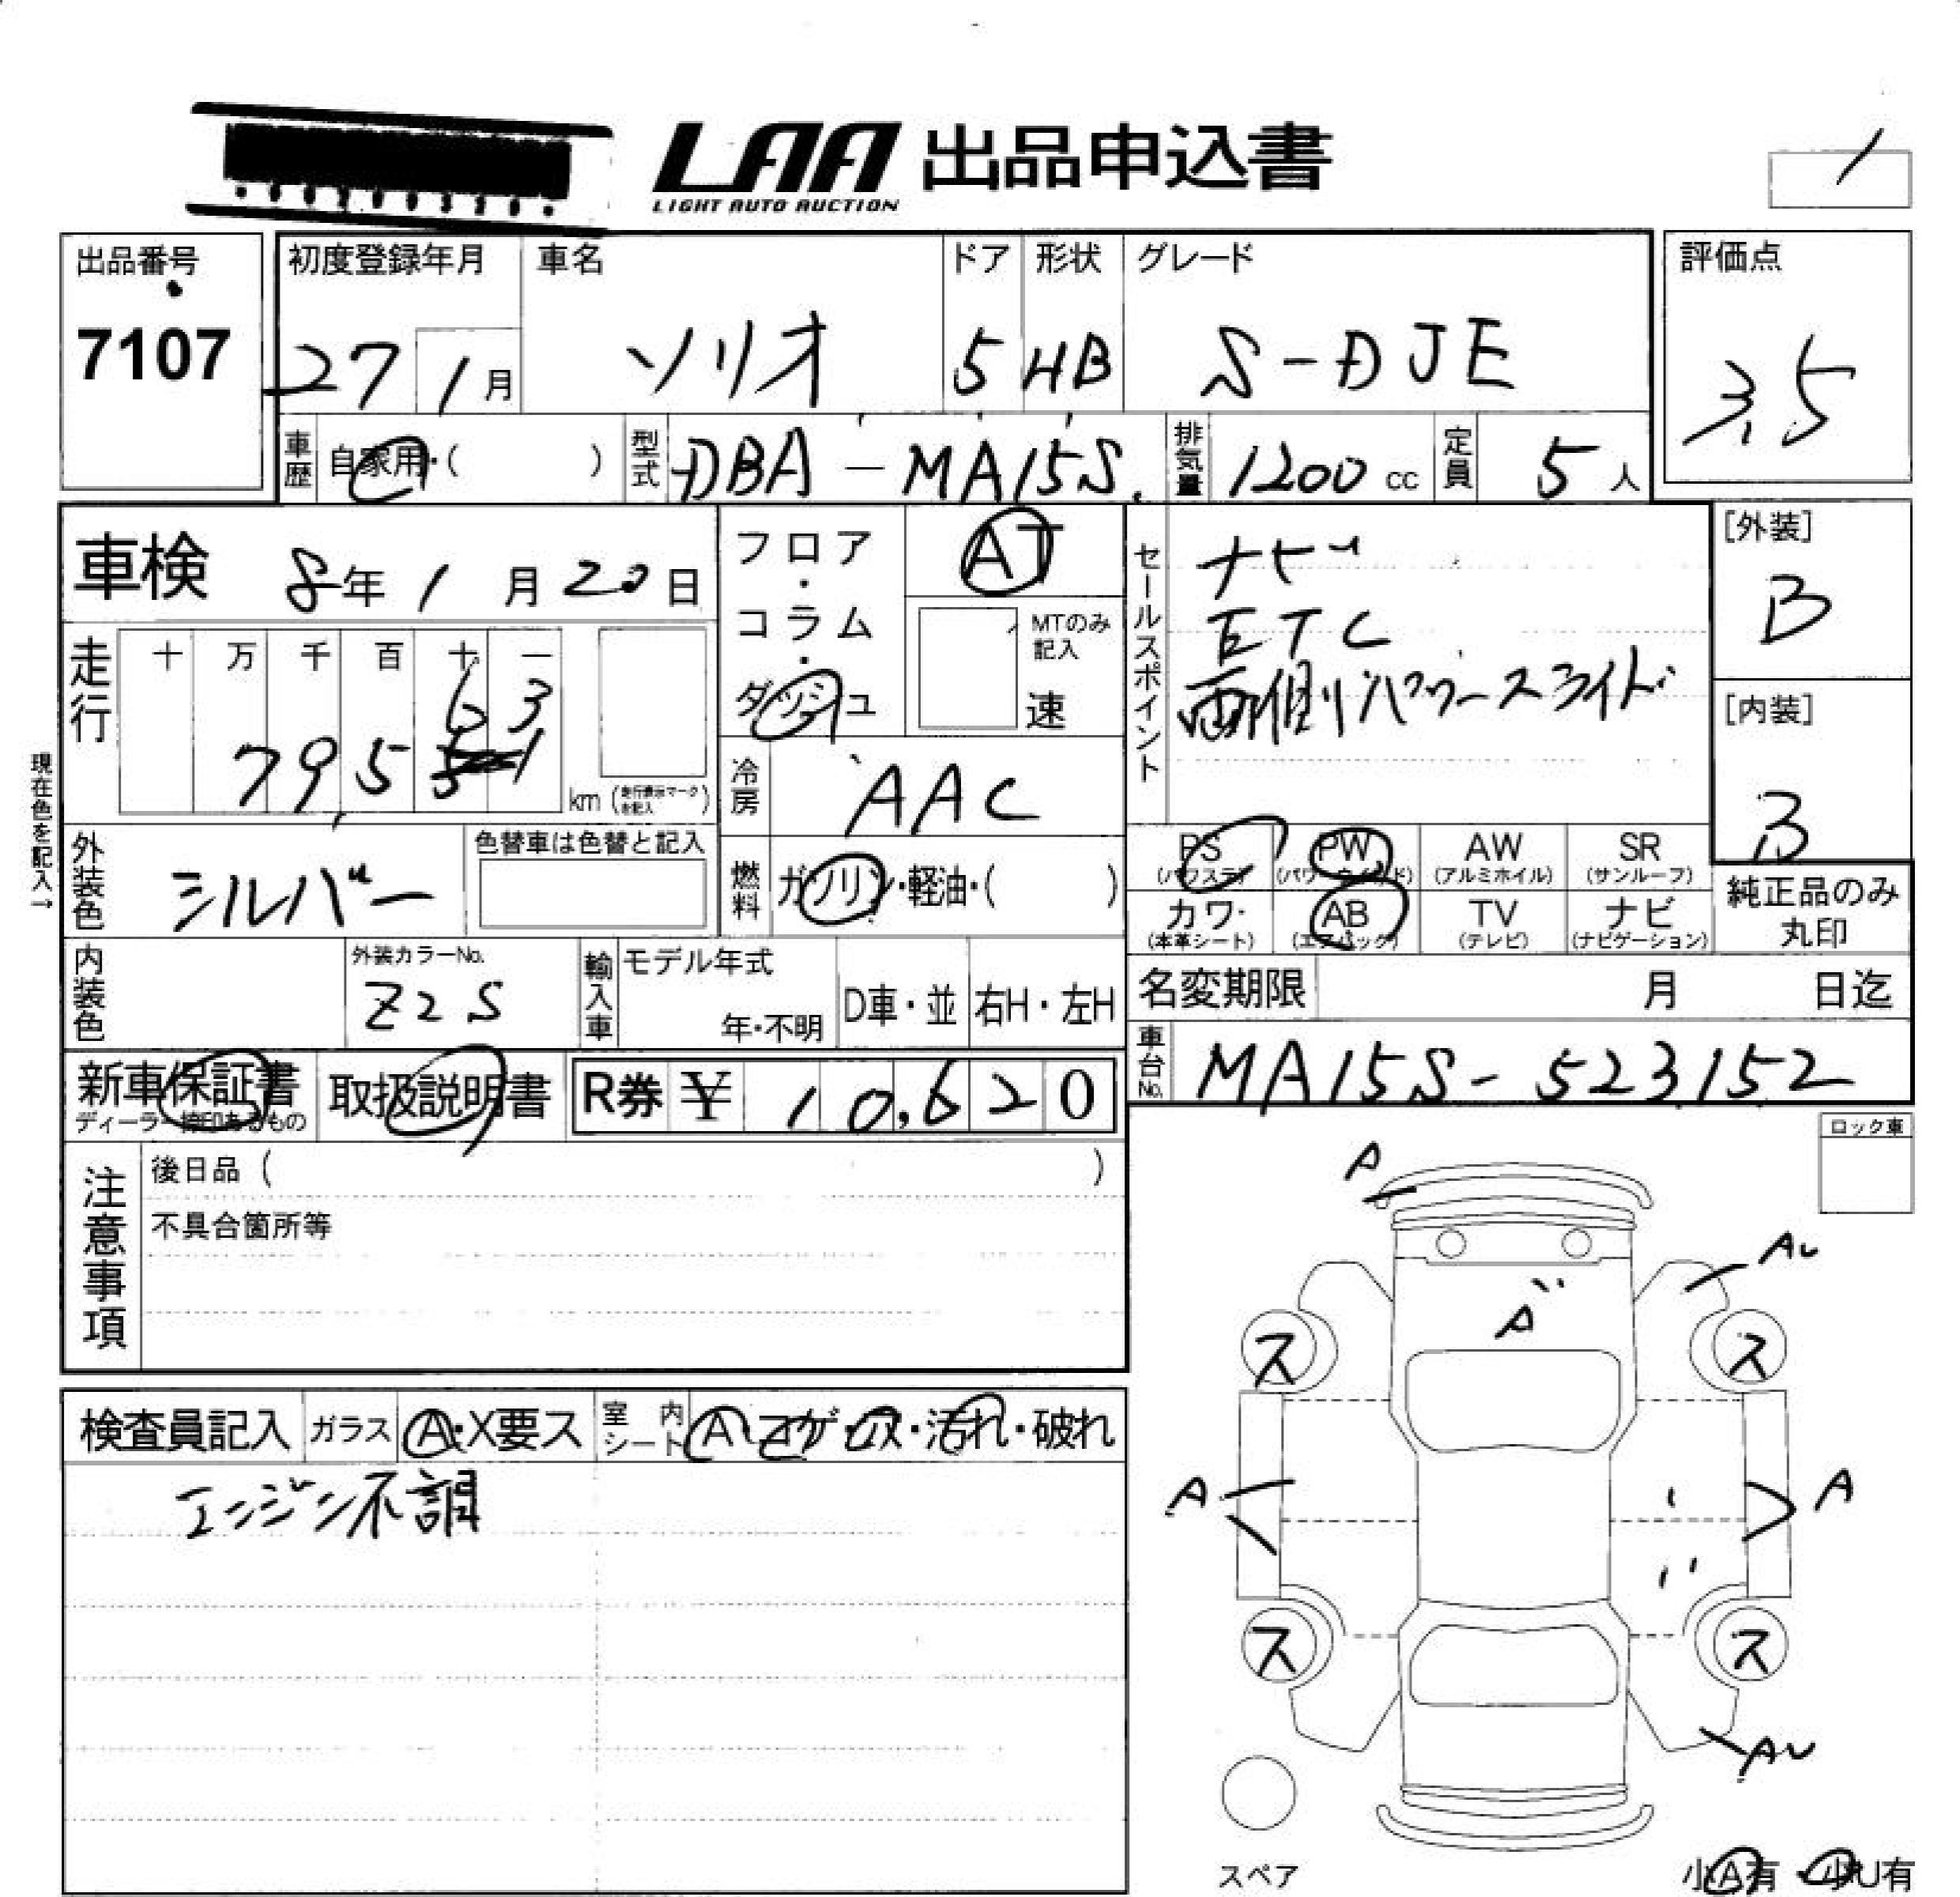 LAA 出品申込書
LIGHT AUTO AUCTION
出品番号
7107
初度登録年月
27 1月
車名
ソリオ
ドア
5
形状
HB
グレード
S-DJE
評価点
3.5
車歴 自家用・( )
型式 DBA-MA15S
排気量 1200 cc
定員 5人
車検 8年1月20日
フロア・コラム・ダッシュ
AT
MTのみ記入
速
セールスポイント
ナビ
ETC
両側パワースライド
[外装]
B
[内装]
B
走行
十 万 千 百 十 一
63
79,551
km (走行表示マークを記入)
現在色を記入→
冷房 AAC
外装色 シルバー
色替車は色替と記入
燃料 ガソリン・軽油・( )
PS (パワステ) PW (パワーウインド) AW (アルミホイル) SR (サンルーフ)
カワ・ (本革シート) AB (エアバック) TV (テレビ) ナビ (ナビゲーション)
純正品のみ丸印
内装色
外装カラーNo.
Z2S
輸入車
モデル年式
年・不明
D車・並
右H・左H
名変期限 月 日迄
車台No. MA15S-523152
新車保証書
ディーラー捺印あるもの
取扱説明書
R券 ¥ 10,620
ロック車
注意事項
後日品 ( )
不具合箇所等
検査員記入
ガラス A・X要ス
室内シート A・コゲ・ス・汚れ・破れ
エンジン不調
A
AU
A
ス ス
A A
ス ス
AU
スペア
小A有・小U有